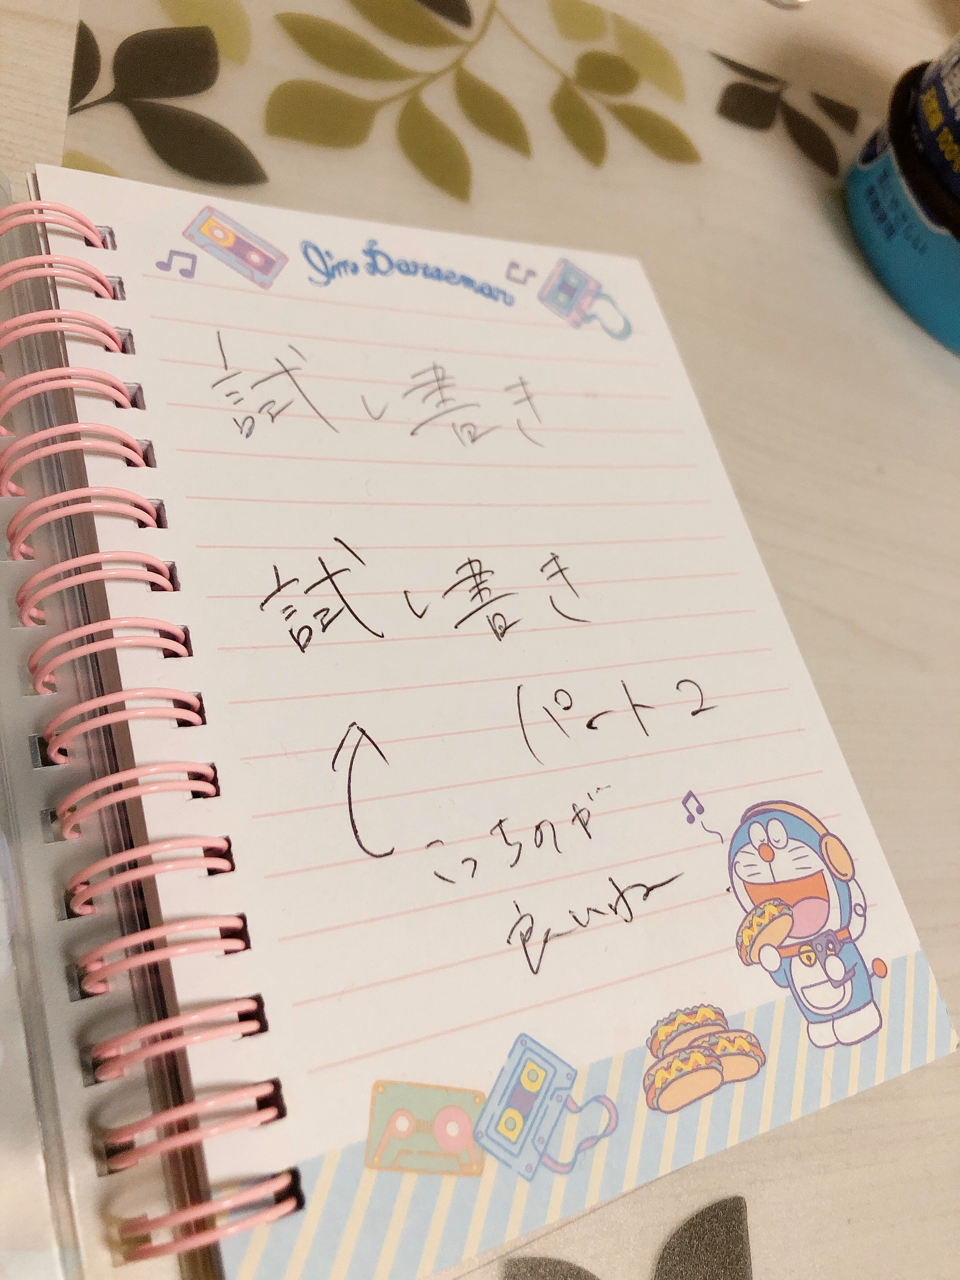 I'm Doraemon
試し書き
試し書き
パート2
こっちのが
良いねー